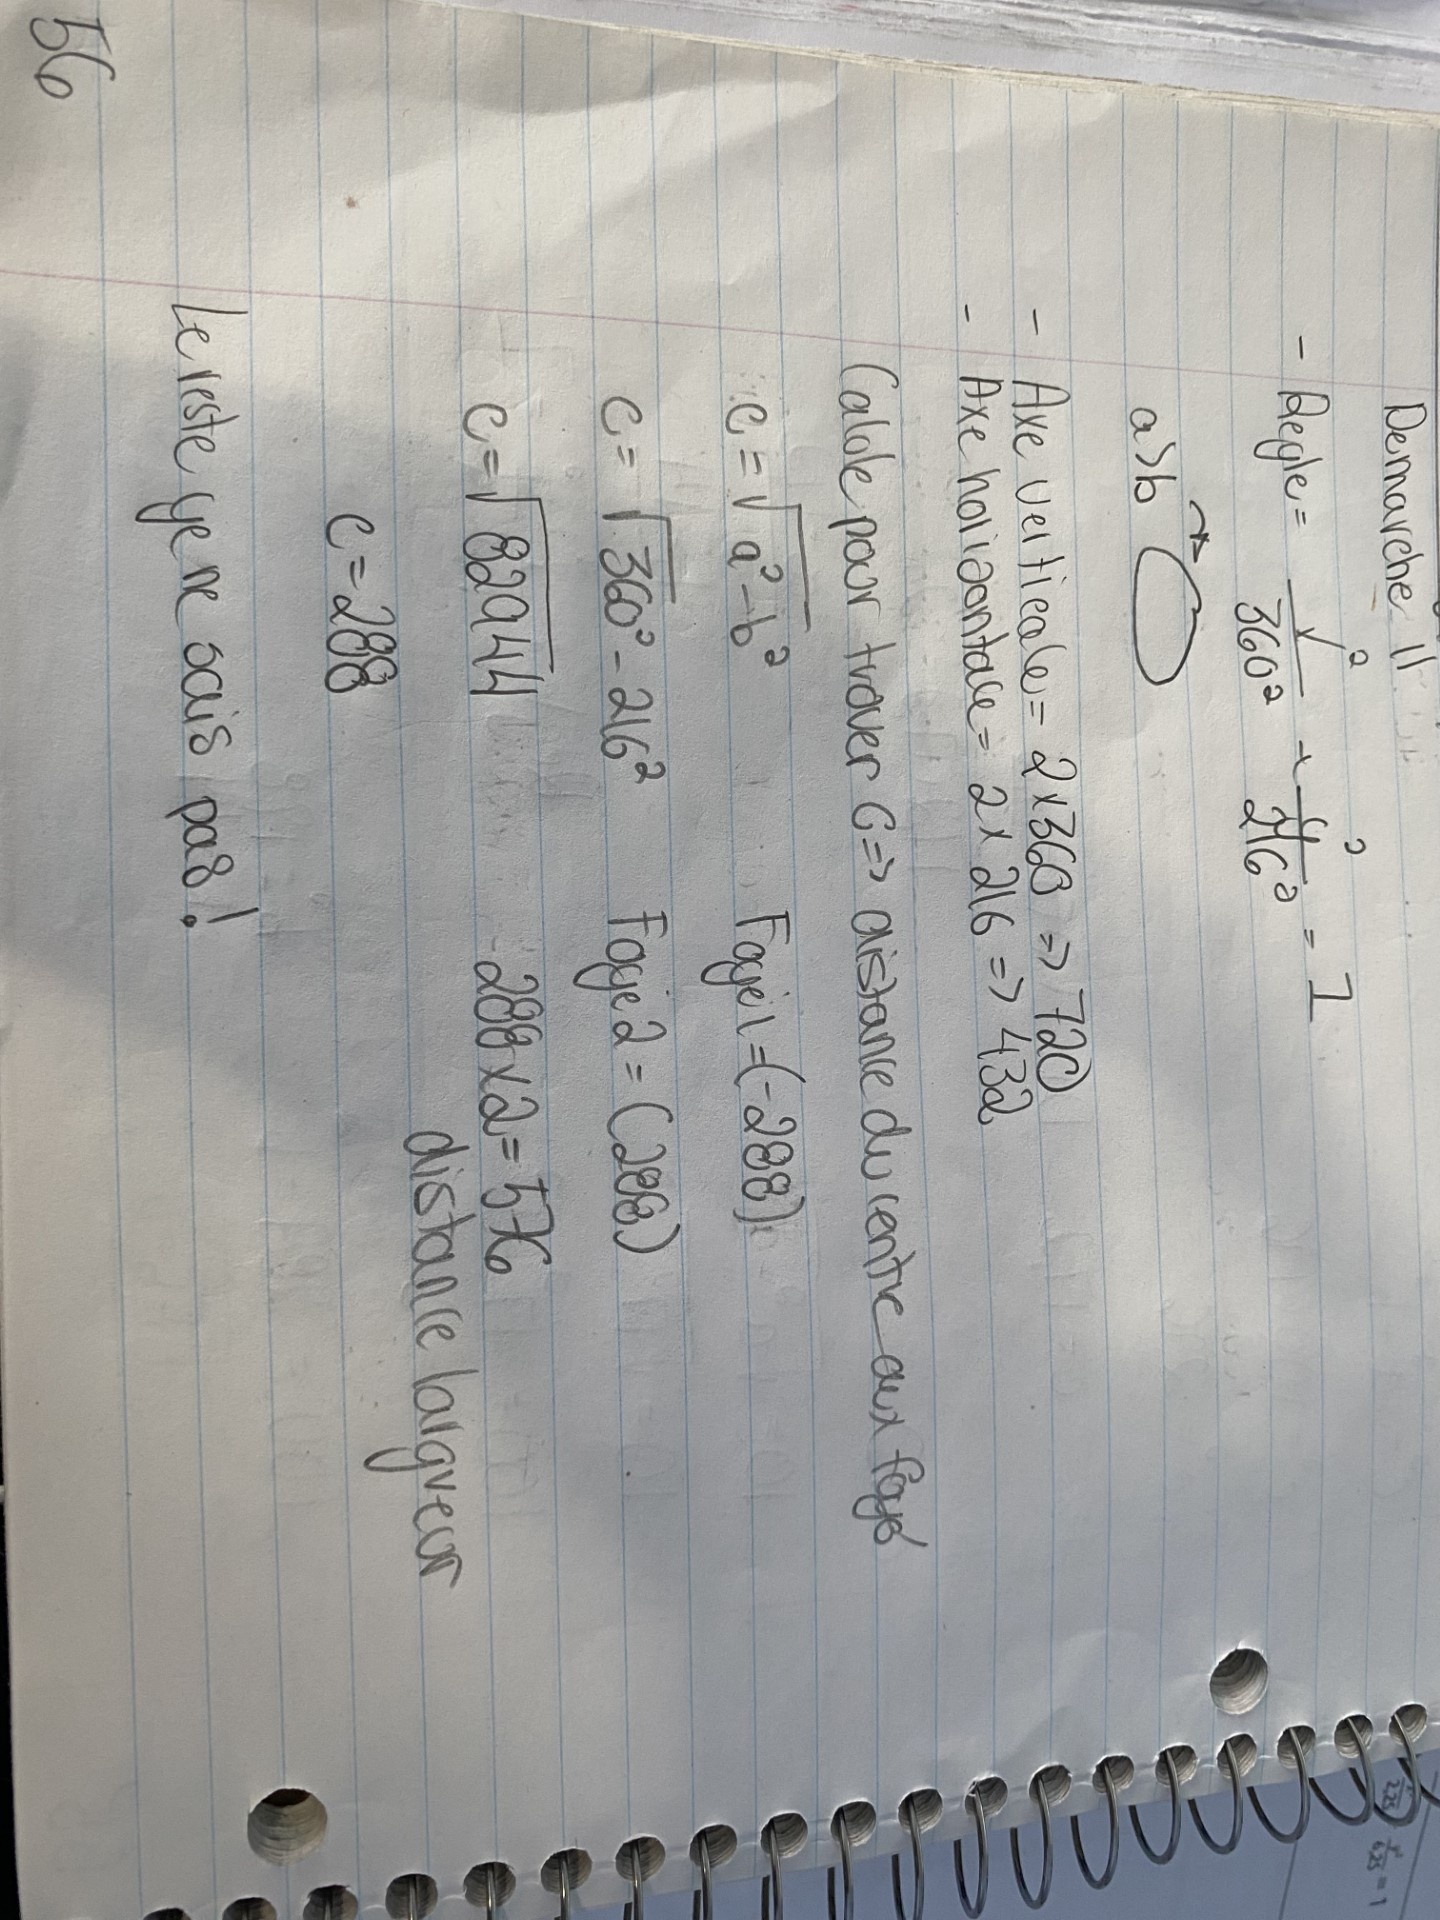 Demarche 11
- Regle = x²/360² + y²/216² = 1
a>b
- Axe verticale = 2x360 => 720
- Axe horizontale = 2x 216 => 432
Calcule pour trouver C => distance du centre aux foyé
c = √a²-b² Foyei 1 = (-288)
c = √360² - 216² Foye 2 = (288)
c = √82944 288x2 = 576
distance largveur
c = 288
Le reste je ne sais pas!
56